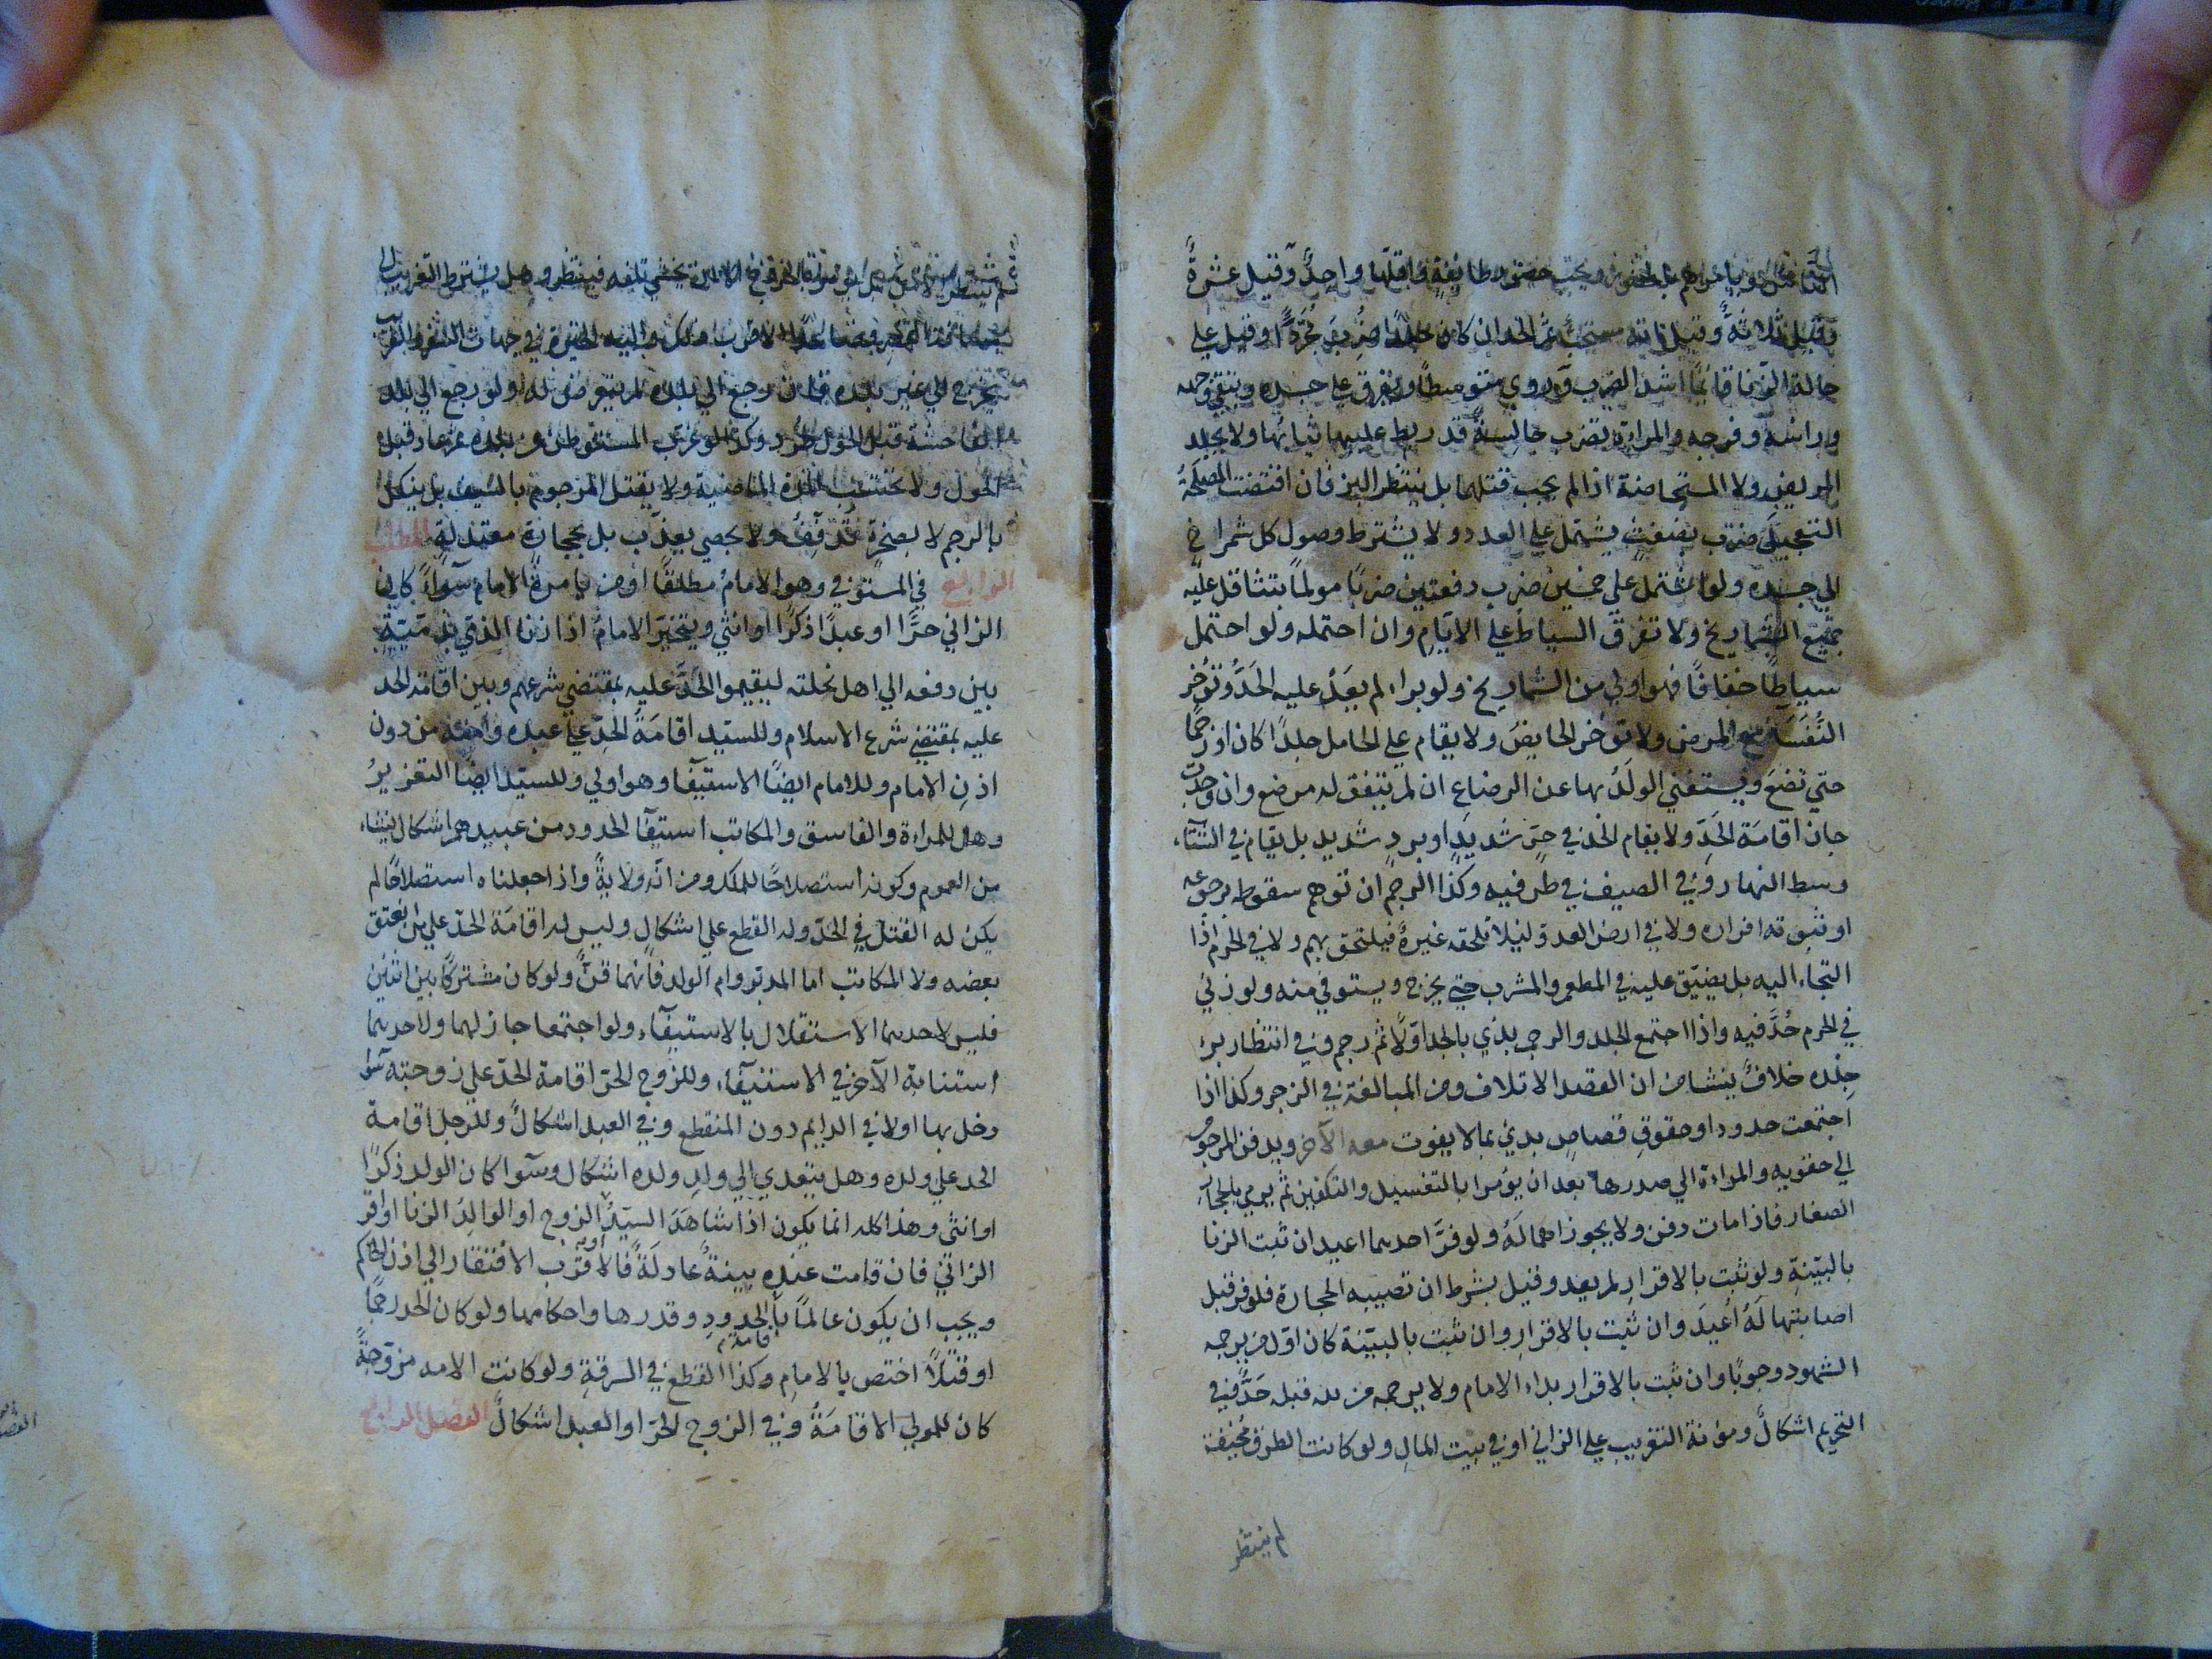 الناس ويأمرهم بالحضور ويجب حضور طايفة واقلها واحد وقيل عشرة
وقيل ثلاثة وقيل انه مستحب ثم الحد ان كان جلدا ضرب مجردا وقيل على
حالة الزنا قائما اشد الضرب وروي متوسطا ويفرق على جسده ويتقي وجهه
وراسه وفرجه والمراة تضرب جالسة قد ربط عليها ثيابها ولا يجلد
المريض ولا المستحاضة اذا لم يجب قتلهما بل ينتظر البرء فان اقتضت المصلحة
التعجيل ضرب بضغث يشتمل على العدد ولا يشترط وصول كل شمراخ
الى جسده ولو اشتمل على خمسين ضرب دفعتين ضربا مولما يتثاقل عليه
جميع الشماريخ ولا تفرق السياط على الايام وان احتمله ولو احتمل
سياطا خفافا فهو اولى من الشماريخ ولو براء لم يعد عليه الحد وتؤخر
النفساء مع المرض ولا تؤخر الحايض ولا يقام على الحامل جلدا كان او رجما
حتى تضع ويستغني الولد بها عن الرضاع ان لم يتفق له مرضع وان وجدت
جاز اقامة الحد ولا يقام الحد في حر شديد او برد شديد بل يقام في الشتاء
وسط النهار وفي الصيف في طرفيه وكذا الرجم ان توهم سقوطه برجوعه
او بتوبته اقراره ولا في ارض العدو ليلا تلحقه غيرة فيلتحق بهم ولا في الحرم اذا
التجاء اليه بل يضيق عليه في المطعم والمشرب حتى يخرج ويستوفي منه ولو زنى
في الحرم حد فيه واذا اجتمع الجلد والرجم بدي بالجلد اولا ثم رجم وفي انتظار برء
جلده خلاف ينشا من ان القصد الاتلاف ومن المبالغة في الزجر وكذا اذا
اجتمعت حدود او حقوق قصاص بدي بما لا يفوت معه الآخر ويدفن المرجوم
الى حقويه والمراءة الى صدرها بعد ان يؤمرا بالتغسيل والتكفين ثم يرمى بالحجار
الصغار فاذا مات دفن ولا يجوز اهماله ولو فر احدهما اعيد ان ثبت الزنا
بالبينة ولو ثبت بالاقرار لم يعد وقيل بشرط ان تصيبه الحجارة فلو فر قبل
اصابتها له أعيد وان ثبت بالاقرار وان ثبت بالبينة كان اول من يرجمه
الشهود وجوبا وان ثبت بالاقرار بداء الامام ولا يرجمه من لله قبله حد وفي
التحريم اشكال ومؤنة التغريب على الزاني او في بيت المال ولو كانت الطرق مخيفة
لم ينتظر
لم ينتظر
يخرج الى غير بلده فان رجع الى بلده لم يتعرض له ولو رجع الى بلد
الفاحشة قبل الحول طرد وكذا لو غرب المستوطن من بلده ثم عاد قبل
الحول ولا تحتسب المدة الماضية ولا يقتل المرجوم بالسيف بل ينكل
بالرجم لا بصخرة تذفف ولا بحصى يعذب بل بحجارة معتدلة المطلب
الرابع في المستوفي وهو الامام مطلقا او من يامره الامام سواء كان
الزاني حرا او عبدا ذكرا او انثى ويتخير الامام اذا زنا الذمي بذمية
بين دفعه الى اهل نحلته ليقيموا الحد عليه بمقتضى شرعهم وبين اقامة الحد
عليه بمقتضى شرع الاسلام وللسيد اقامة الحد على عبده وامته من دون
اذن الامام وللامام ايضا الاستيفا وهو اولى وللسيد ايضا التعزير
وهل للمراءة والفاسق والمكاتب استيفا الحدود من عبيدهم اشكال ينشاء
من العموم وكونه استصلاحا للملك ومن انه ولاية واذا جعلناه استصلاحا لم
يكن له القتل في الحد وله القطع على اشكال وليس له اقامة الحد على من انعتق
بعضه ولا المكاتب اما المدبر وام الولد فانهما قن ولو كان مشتركا بين اثنين
فليس لاحدهما الاستقلال بالاستيفاء ولو اجتمعا جاز لهما ولاحدهما
استنابة الآخر في الاستيفاء وللزوج الحر اقامة الحد على زوجته سواء
دخل بها او لا في الدايم دون المنقطع وفي العبد اشكال وللرجل اقامة
الحد على ولده وهل يتعدى الى ولد ولده اشكال وسوا كان الولد ذكرا
او انثى وهذا كله انما يكون اذا شاهد السيد الزوج او الوالد الزنا او اقر
الزاني فان قامت عنده بينة عادلة فالاقرب الافتقار الى اذن الحاكم
ويجب ان يكون عالما باقامة الحدود وقدرها واحكامها ولو كان الحد رجما
او قتلا اختص بالامام وكذا القطع في السرقة ولو كانت الامه مزوجة
كان للمولى الاقامة وفي الزوج الحر او العبد اشكال الفصل الرابع